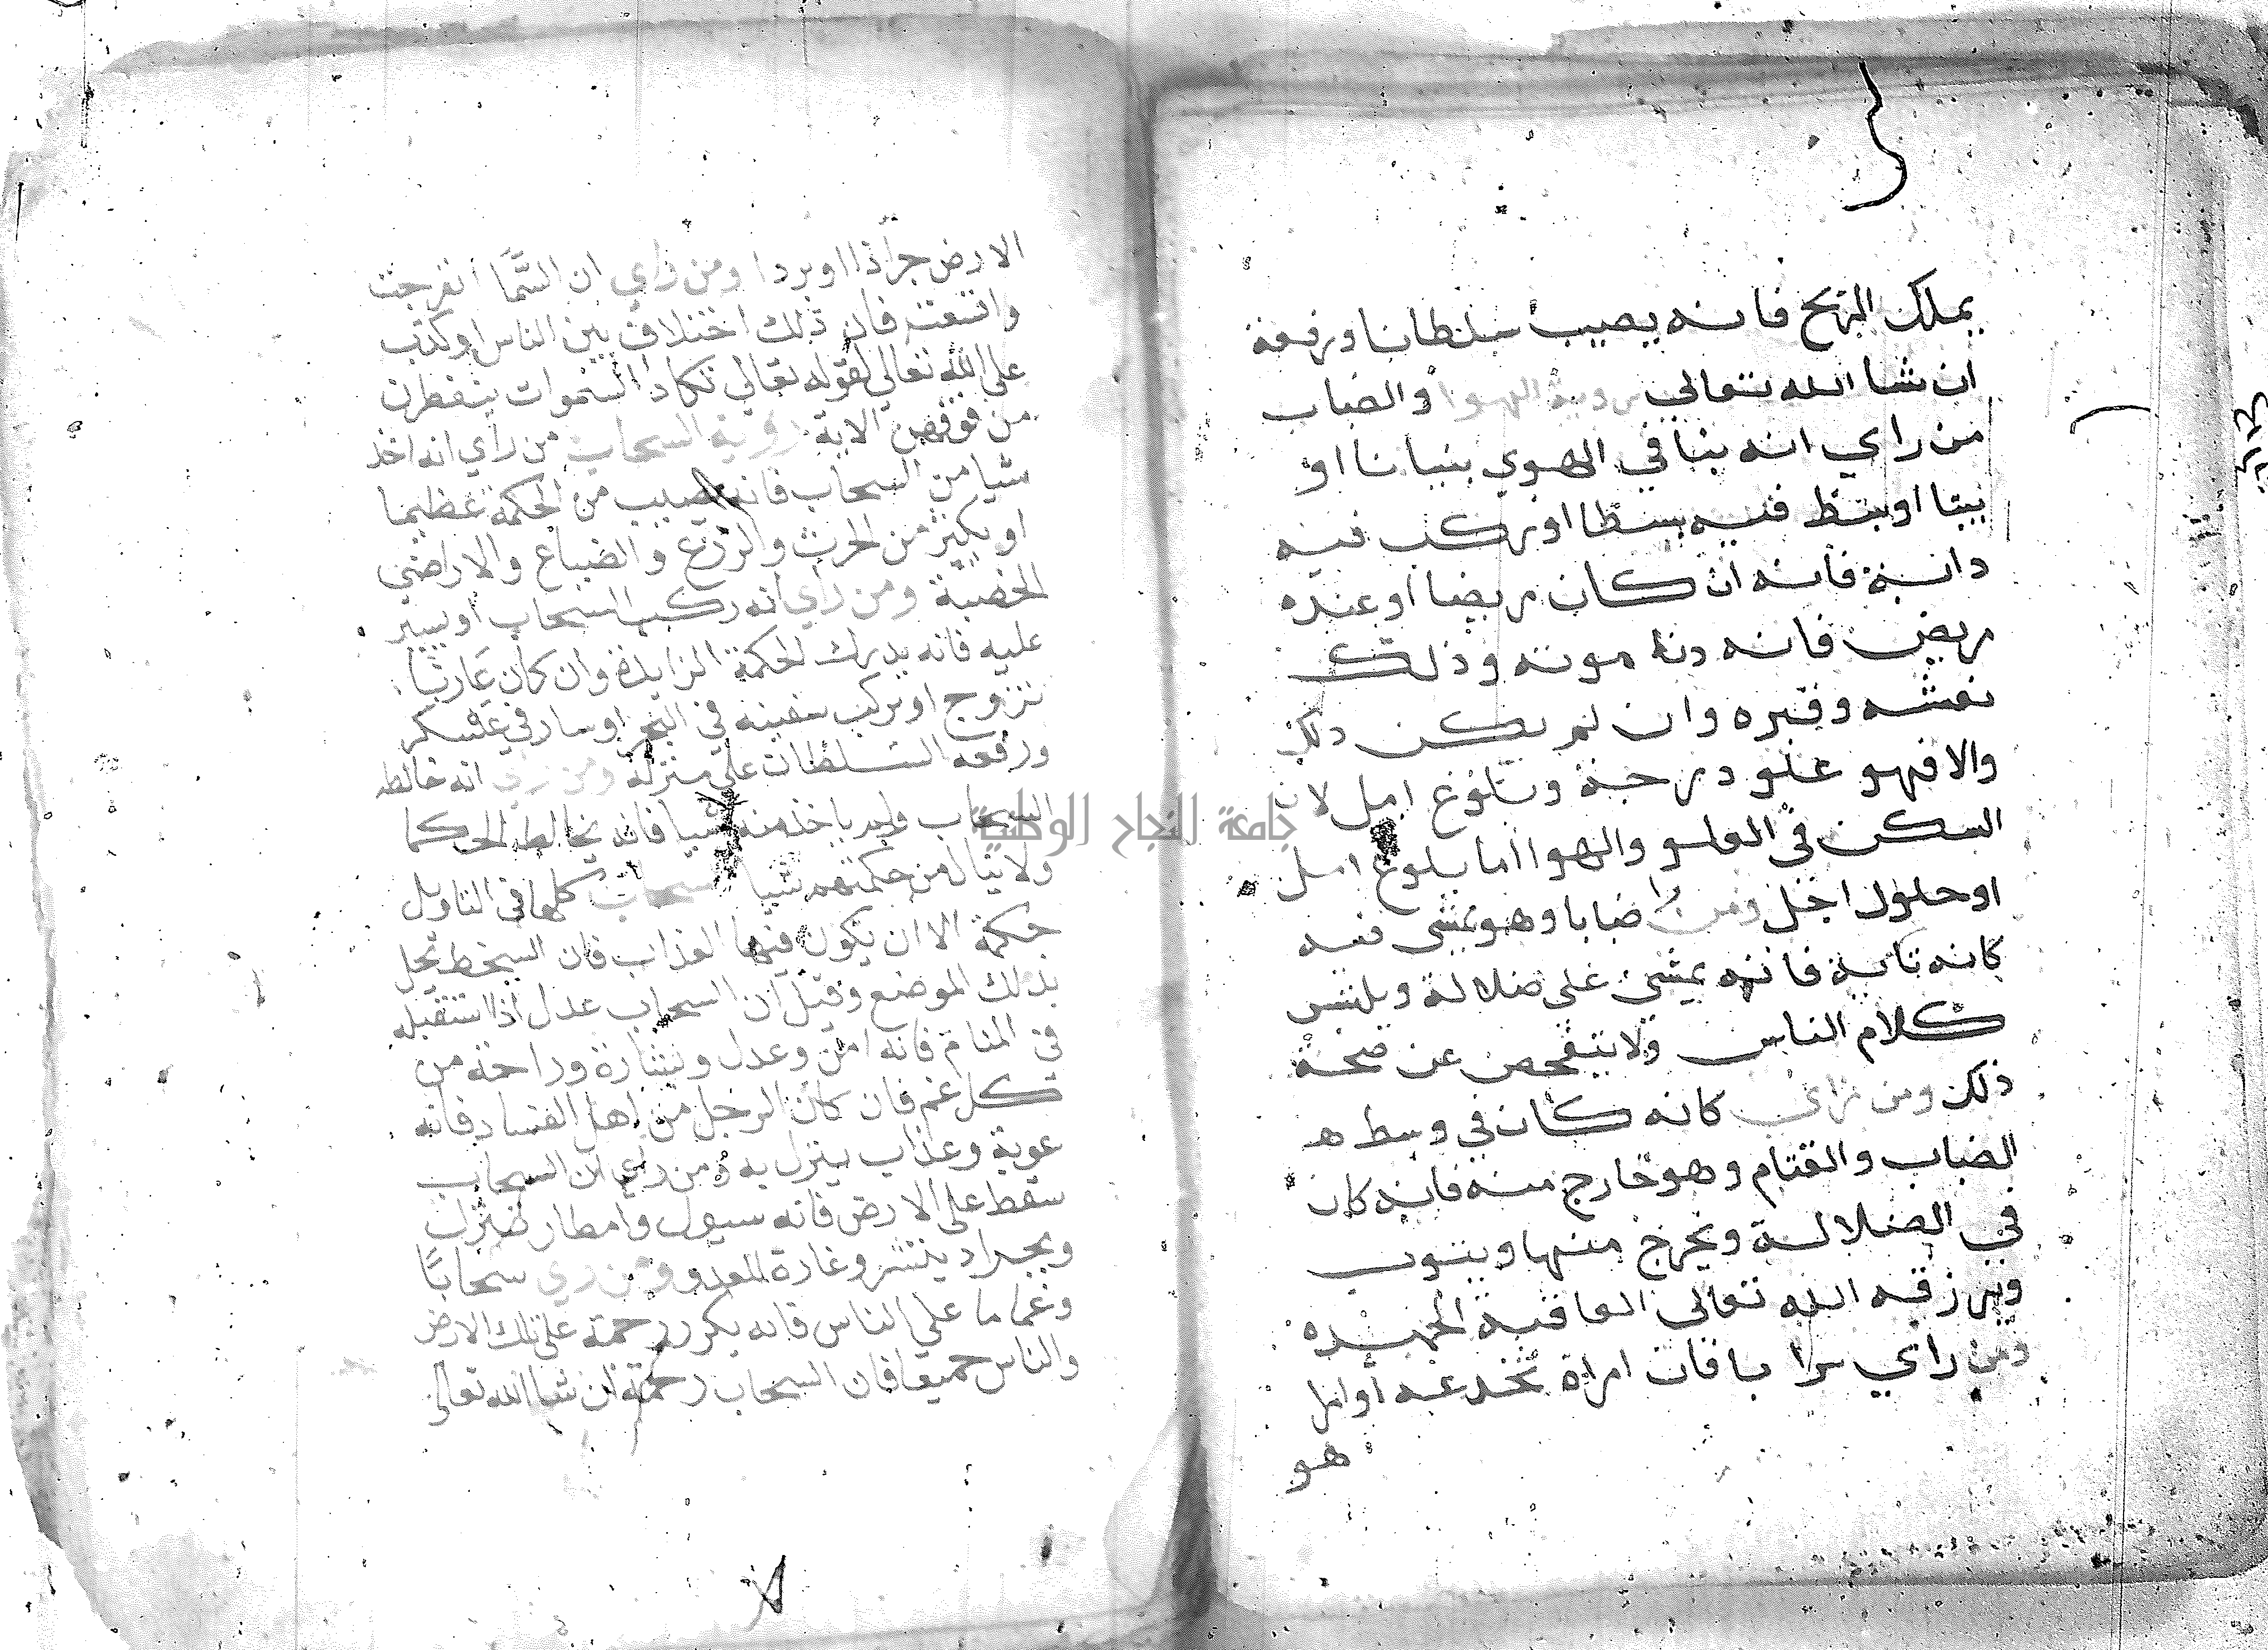 يملك الريح فانه يصيب سلطانا ورفعة
ان شا الله تعالي روية الهوا والضباب
من راي انه بنا في الهوي بنيانا او
بيتا او بسط فيه بسطا او ركب فيه
دابة فانه ان كان مريضا او عنده
مريض فانه دنا موته وذلك
نعشه وقبره وان لم يكن ذلك
والا فهو علو درجة وبلوغ امل لانه
السكن في العلو والهوا اما بلوغ امل
او حلول اجل ومن را ضبابا وهو يمشي فيه
كانه تايه فانه يمشي على ضلالة ويلتبس
كلام الناس ولا يتفحص عن صحة
ذلك ومن راي كانه كان في وسط ه
الضباب والقتام وهو خارج منه فانه كان
في الضلالة ويخرج منها ويتوب
ويرزقه الله تعالى العاقبة الحميده
ومن راي سرابا فان امراة تخدعه او امل
هو
الارض جرادا او بردا ومن راي ان السما انفرجت
وانشقت فان ذلك اختلاف بين الناس او كذب
على الله تعالي لقوله تعالي تكاد السموات يتفطرن
من فوقهن الاية روية السحاب من راي انه اخذ
شيا من السحاب فانه يصيب من الحكمة عظيما
او يكثر من الحرث والزرع والضياع والاراضي
الخصبة ومن راي انه ركب السحاب او يسير
عليه فانه يدرك الحكمة الزايدة وان كان عازبا
تزوج او يركب سفينه في البحر او سار في عسكر
ورفعه السلطان على منزله ومن راي انه خالط
السحاب ولم ياخذ منه شيا فانه يخالط الحكما
ولا ينال من حكمتهم شيا السحاب كلها في التاويل
حكمة الا ان يكون فيها العذاب فان السخط يحل
بذلك الموضع وقيل ان السحاب عدل اذا استقبله
في المنام فانه امن وعدل وبشارة وراحة من
كل غم فان كان الرجل من اهل الفساد فانه
عوبة وعذاب ينزل به ومن راي ان السحاب
سقط على الارض فانه سيول وامطار تنزل
وبجراد ينتشر وغارة للعدو ومن ري سحابا
وغماما على الناس فانه يكرر رحمة على تلك الارض
والناس جميعا فان السحاب رحمة ان شا الله تعالى
جامعة النجاح الوطنية